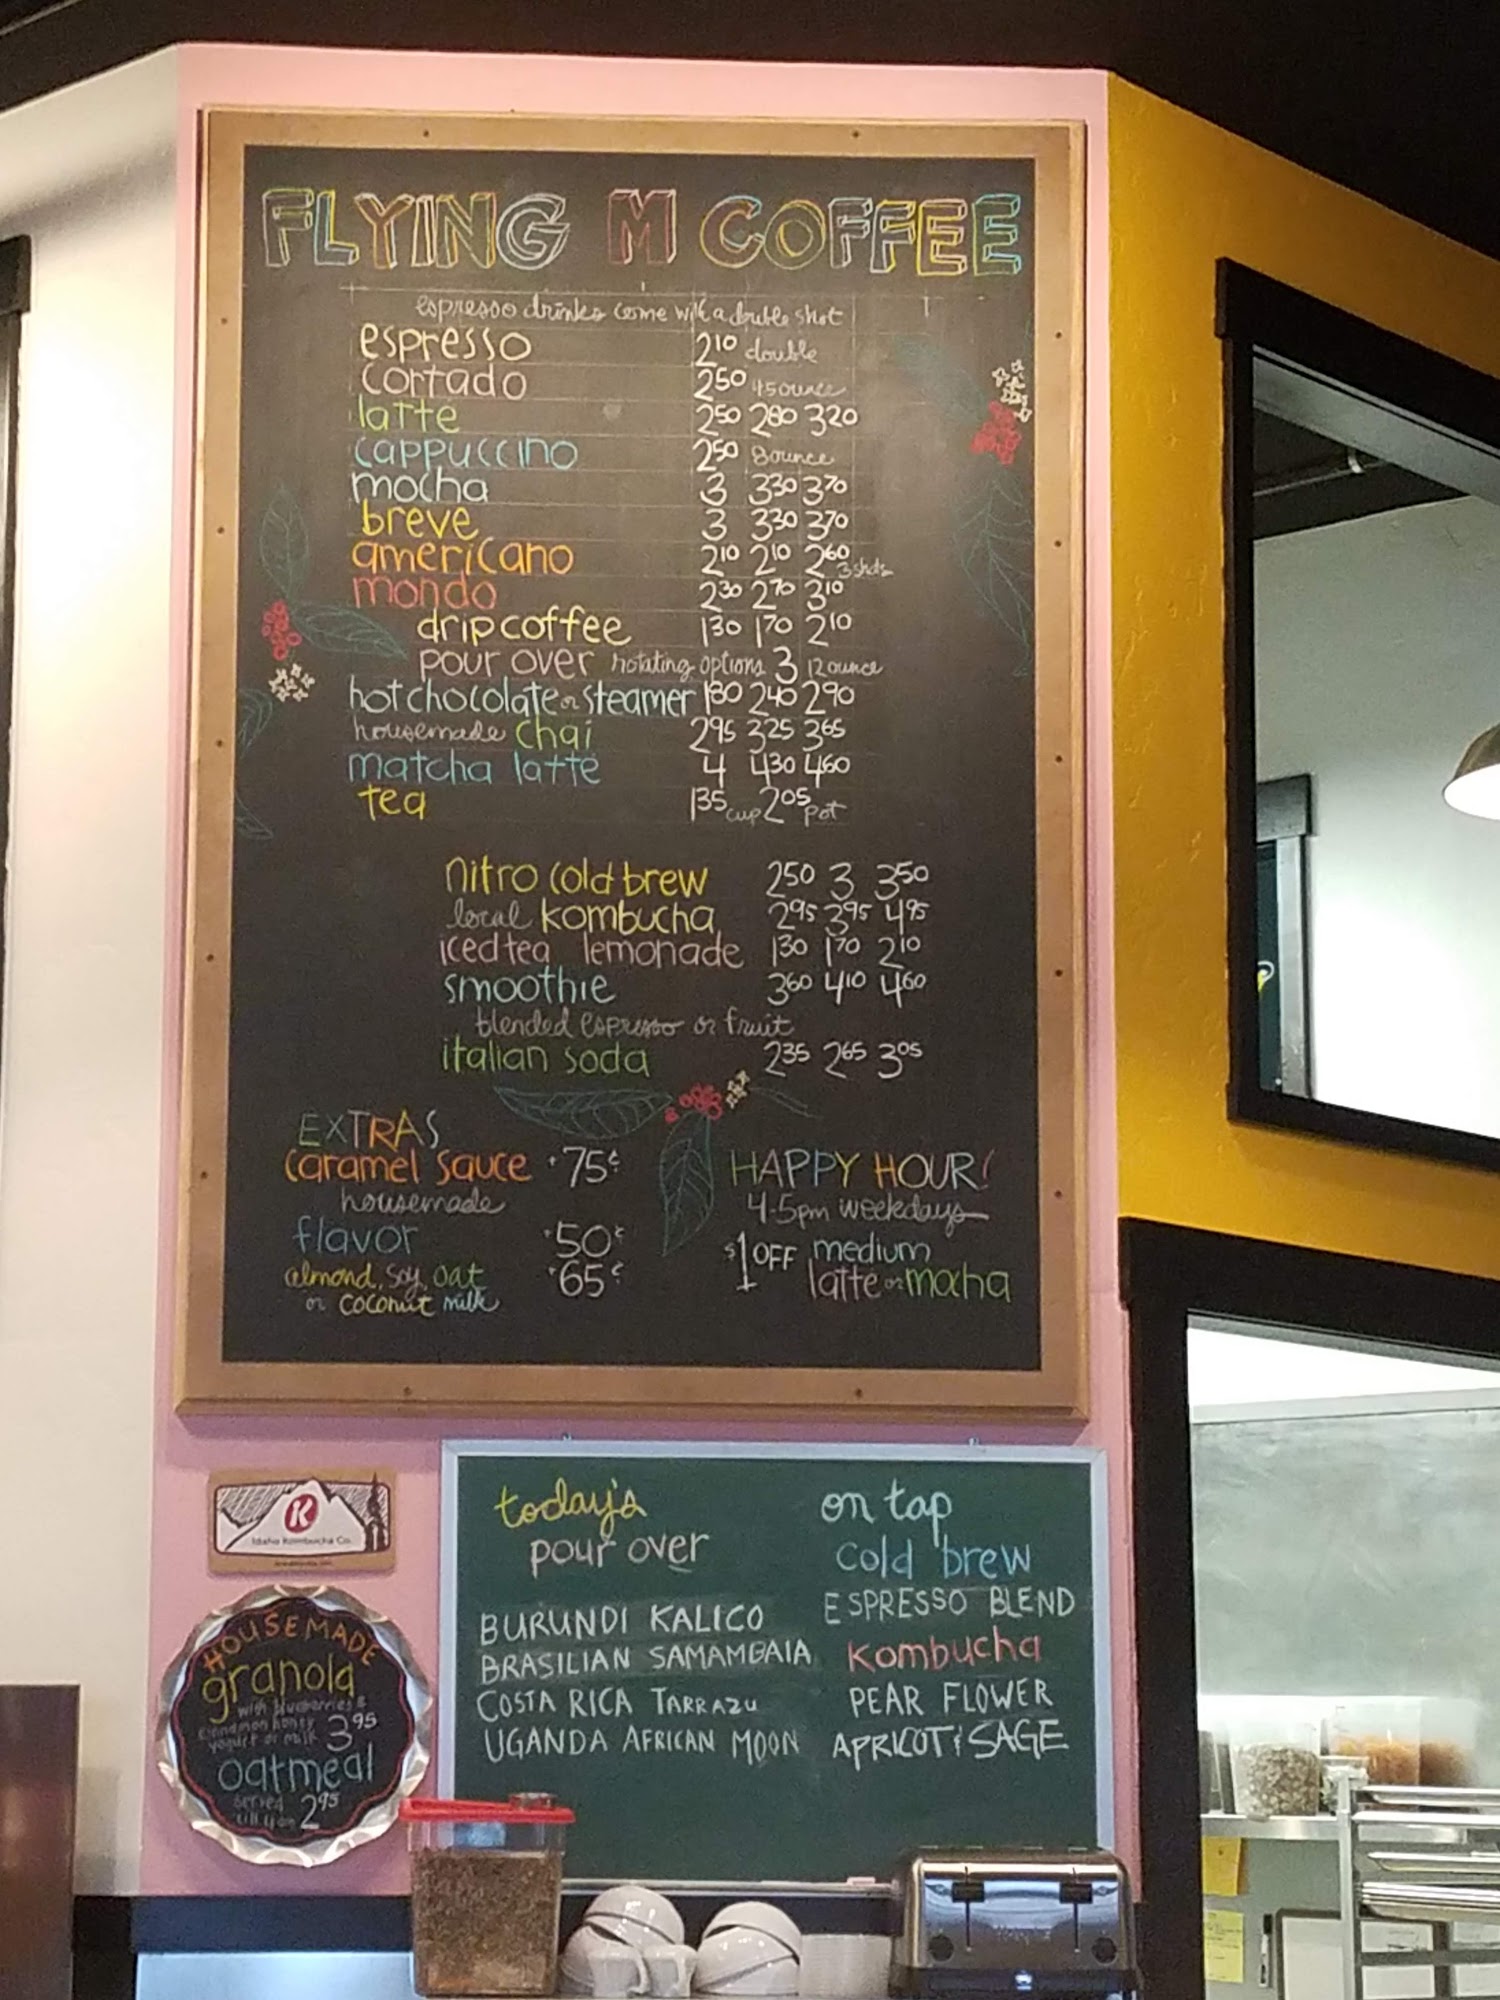 FLYING M COFFEE
espresso drinks come with a double shot
espresso 2 10 double
cortado 2 50 4.5 ounce
latte 2 50 2 80 3 20
cappuccino 2 50 8 ounce
mocha 3 3 30 3 70
breve 3 3 30 3 70
americano 2 10 2 10 2 60 3 shots
mondo 2 30 2 70 3 10
drip coffee 1 30 1 70 2 10
pour over rotating options 3 12 ounce
hot chocolate or steamer 1 80 2 40 2 90
housemade chai 2 95 3 25 3 65
matcha latte 4 4 30 4 60
tea 1 35 cup 2 05 pot
nitro cold brew 2 50 3 3 50
local kombucha 2 95 3 95 4 95
iced tea lemonade 1 30 1 70 2 10
smoothie 3 60 4 10 4 60
blended espresso or fruit
italian soda 2 35 2 65 3 05
EXTRAS
caramel sauce +75¢
housemade
flavor +50¢
almond, soy, oat +65¢
or coconut milk
HAPPY HOUR!
4-5pm weekdays
$1 OFF medium
latte or mocha
K
Idaho Kombucha Co.
HOUSEMADE
granola
with blueberries &
cinnamon honey
yogurt or milk 3 95
oatmeal
served
till 11am 2 95
today's
pour over
BURUNDI KALICO
BRASILIAN SAMAMBAIA
COSTA RICA TARRAZU
UGANDA AFRICAN MOON
on tap
cold brew
ESPRESSO BLEND
Kombucha
PEAR FLOWER
APRICOT & SAGE